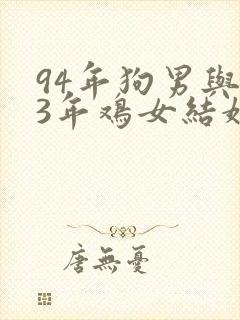 94年狗男與
3年鸡女結婚
唐無憂